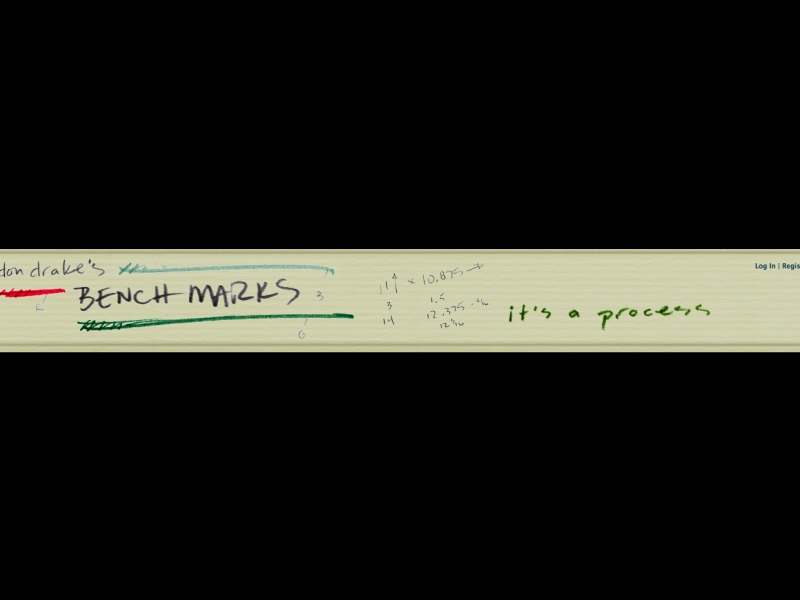 don drake's
BENCH MARKS
3
6
11 x 10.875
3 1.5
14 12.375
it's a process
Log In | Regis